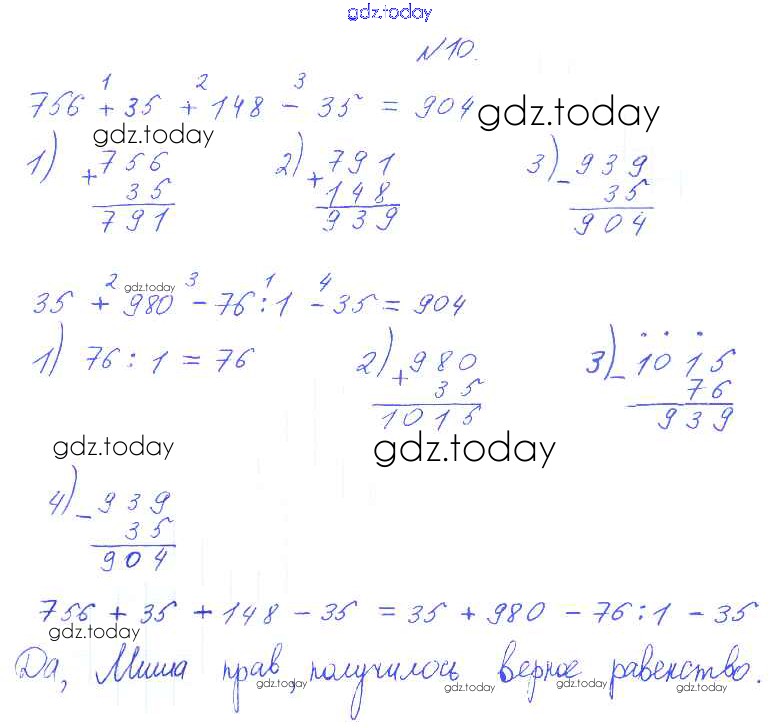 gdz.today
№10.
1 2 3
756 + 35 + 148 - 35 = 904 gdz.today
gdz.today
1) + 756 2) + 791 3) - 939
35 148 35
791 939 904
2 gdz.today 3 1 4
35 + 980 - 76 : 1 - 35 = 904
1) 76 : 1 = 76 2) + 980 3) - 1015
35 76
1015 939
gdz.today gdz.today
4) - 939
35
904
756 + 35 + 148 - 35 = 35 + 980 - 76 : 1 - 35
gdz.today
Да, Миша прав, получилось верное равенство.
gdz.today gdz.today gdz.today gdz.today